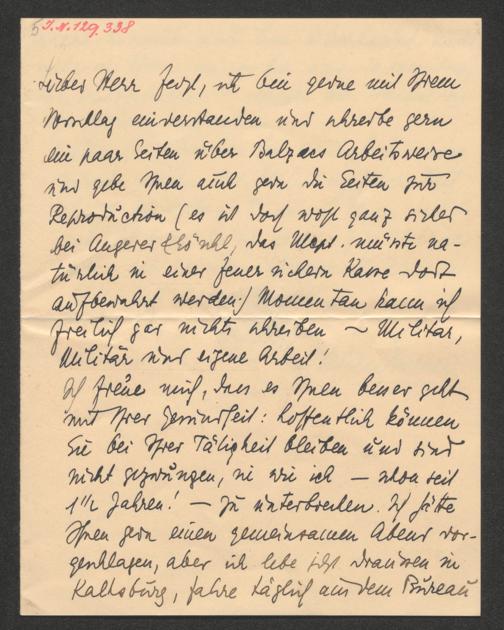 5 I.N. 129.338
Lieber Herr Feigl, ich bin gerne mit Ihrem
Vorschlag einverstanden und schreibe gern
ein paar Seiten über Balzacs Arbeitsweise
und gebe Ihnen auch gern die Seiten zur
Reproduction (es ist doch wohl ganz sicher
bei Angerer & Göschl, das Mscpt. müsste na-
türlich in einer feuersichern Kasse dort
aufbewahrt werden.) Momentan kann ich
freilich gar nichts schreiben ~ Militär,
Militär und eigene Arbeit!
Ich freue mich, dass es Ihnen besser geht
mit Ihrer Gesundheit: hoffentlich können
Sie bei Ihrer Tätigkeit bleiben und sind
nicht gezwungen, sie wie ich – schon seit
1½ Jahren! – zu unterbrechen. Ich hätte
Ihnen gern einen gemeinsamen Abend vor-
geschlagen, aber ich lebe jetzt draussen in
Kalksburg, fahre täglich aus dem Bureau